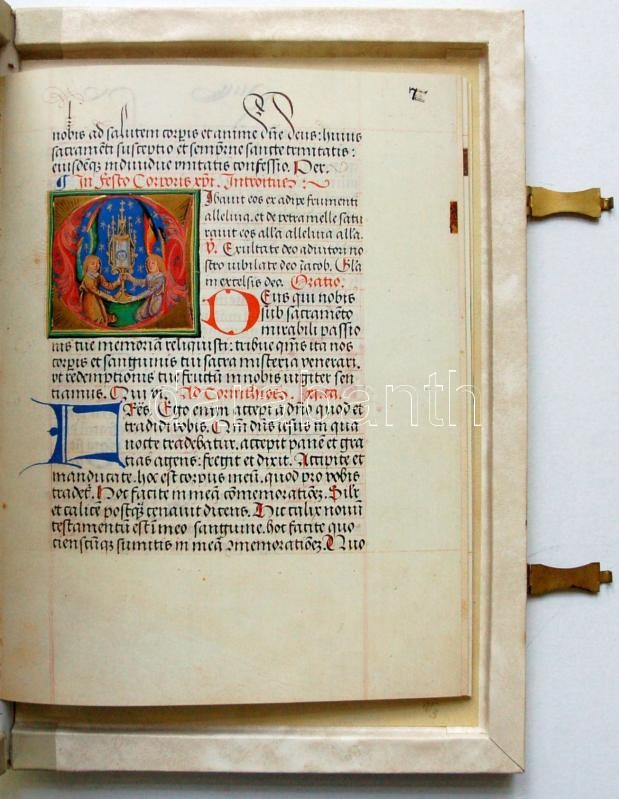 7
nobis ad salutem corpis et anime dñe deus: huius
sacramēti susceptio et sempiterne sancte trinitatis:
eiusdēqz indiuidue vnitatis confessio. Per.
In Festo Corporis xp̄i. Introitus
Cibauit eos ex adipe frumenti
alleluia. et de petra melle satu
rauit eos all'a alleluia all'a.
V. Exultate deo adiutori no
stro iubilate deo iacob. Gl'a
in excelsis deo. Oratio.
Deus qui nobis
sub sacramēto
mirabili passio
nis tue memoriā reliquisti: tribue qms ita nos
corpis et sanguinis tui sacra misteria venerari.
vt redemptionis tui fructū in nobis iugiter sen
tiamus. Qui vi. Ad Corinthios
Fr̄es. Ego enim accepi a dño quod et
tradidi vobis. Qm̄ dñs iesus in qua
nocte tradebatur. accepit panē et gra
tias agens: fregit et dixit. Accipite et
manducate. hoc est corpus meū. quod pro vobis
tradet̄. Hoc facite in meā cōmemoratiōez. Silr
et calicē postqz cenauit dicens. Hic calix nouū
testamentū est ī meo sanguine. hoc facite quo
ciensctūqz sumitis in meā cōmemoratiōez. Quo
darabanth